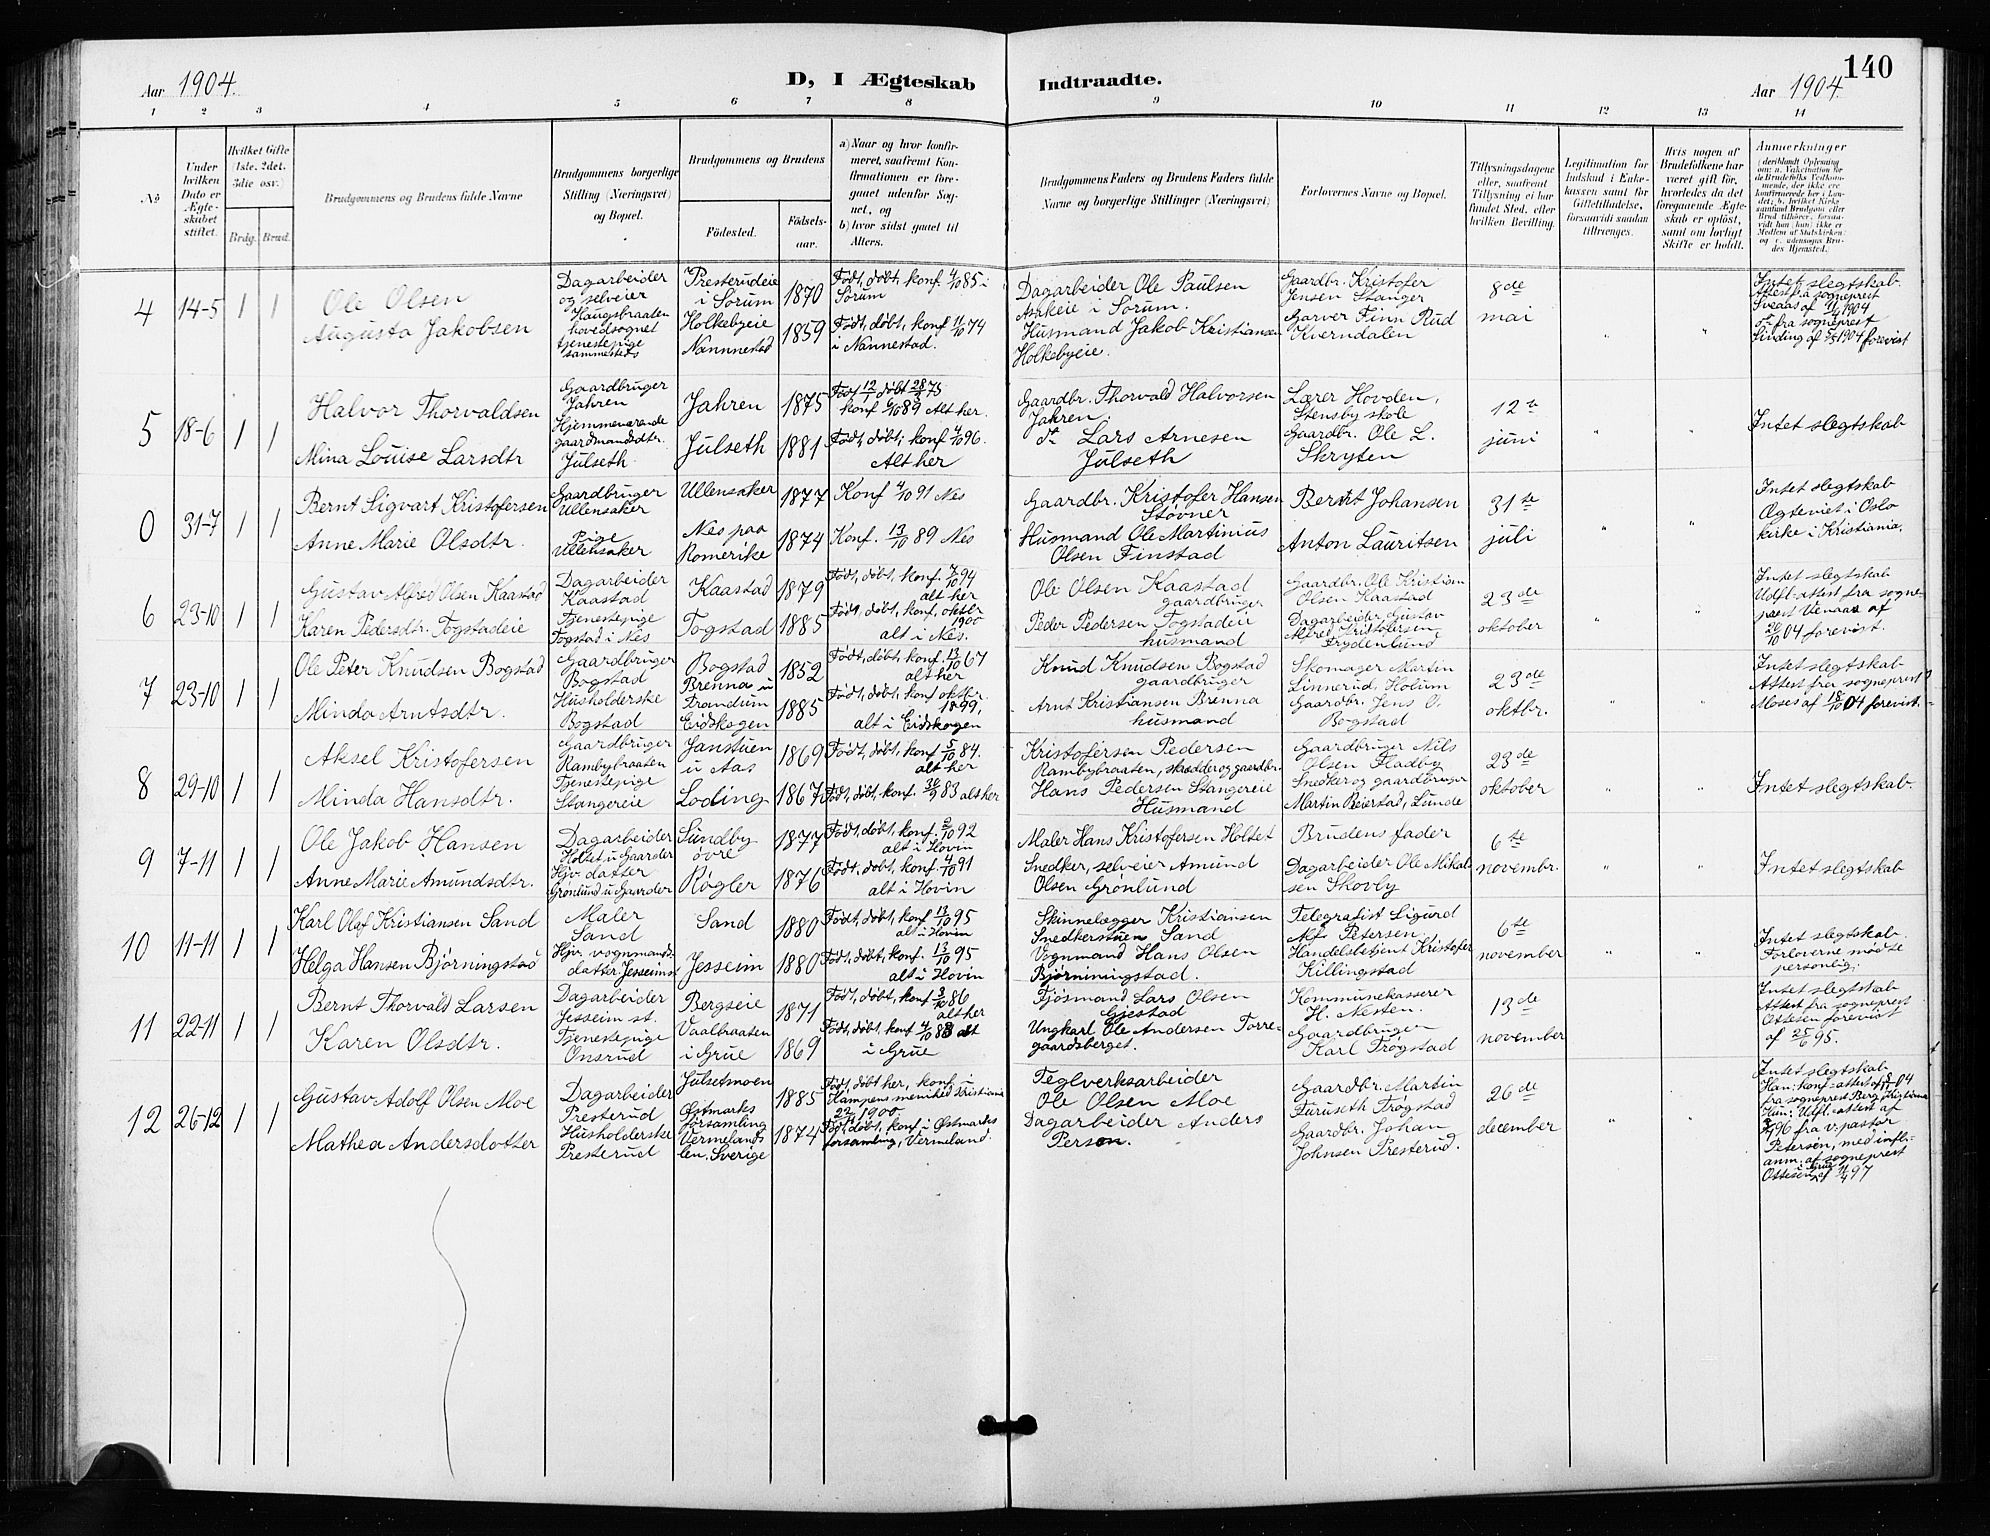 Aar 1904.
D, I Ægteskab
Indtraadte.
Aar 1904.
140
1 2 3 4 5 6 7 8 9 10 11 12 13 14
No
Under hvilken Dato er Ægteskabet stiftet.
Hvilket Gifte (1ste, 2det, 3die osv.)
Brdg. Brud.
Brudgommens og Brudens fulde Navne
Brudgommens borgerlige Stilling (Næringsvei) og Bopæl.
Brudgommens og Brudens
Fødested.
Fødselsaar.
a) Naar og hvor konfirmeret, saafremt Konfirmationen er foregaaet udenfor Sognet, og
b) hvor sidst gaaet til Alters.
Brudgommens Faders og Brudens Faders fulde Navne og borgerlige Stillinger (Næringsvei)
Forlovernes Navne og Bopæl.
Tillysningsdagene eller, saafremt Tillysning ei har fundet Sted, efter hvilken Bevilling.
Legitimation for Indskud i Enkekassen samt for Giftetilladelse, forsaavidt saadan tiltrænges.
Hvis nogen af Brudefolkene har været gift før, hvorledes da det foregaaende Ægteskab er opløst, samt om lovligt Skifte er holdt.
Anmerkninger
4 14-5 1 1
Ole Olsen
Augusta Jakobsen
Dagarbeider
og selveier
Haugsbraaten
hovedsognet
tjenestepige
sammesteds
Presterudeie
i Sørum
Holkebyeie
Nannnestad
1870
1859
Født, døbt, konf. 4/10 85 i
Sørum
Født, døbt, konf 11/10 74
i Nannestad.
Dagarbeider Ole Paulsen
Askeie i Sørum.
Husmand Jakob Kristiansen
Holkebyeie.
Gaardbr. Kristofer
Jensen Stanger
Garver Finn Rud
Kverndalen
8de
mai
Intet slegtskab.
5 18-6 1 1
Halvor Thorvaldsen
Mina Louise Larsdtr
Gaardbruger
Jahren
Hjemmeværende
gaardmandsdtr.
Julseth
Jahren
Julseth
1875
1881
Født 12/1 døbt 28/3 75
konf 6/10 89 Alt her.
Født, døbt, konf 4/10 96.
Alt her
Gaardbr. Thorvald Halvorsen
Jahren.
Lars Arnesen
Julseth
Lærer Hovden,
Stensby skole
Gaardbr. Ole L.
Skryten
12te
juni
Intet slegtskab
0 31-7 1 1
Bernt Sigvart Kristofersen
Anne Marie Olsdtr.
Gaardbruger
Ullensaker
Pige
Ullensaker
Ullensaker
Nes paa
Romerike
1877
1874
Konf 4/10 91 Nes
Konf. 13/10 89 Nes
Gaardbr. Kristofer Hansen
Støvner
Husmand Ole Martinius
Olsen Finstad
Bernt Johansen
Anton Lauritsen
31te
juli
Intet slegtskab
Ægteviet i Oslo
kirke i Kristiania.
6 23-10 1 1
Gustav Alfred Olsen Kaastad
Karen Pedersdtr. Togstadeie
Dagarbeider
Kaastad
Tjenestepige
Togstad i Nes
Kaastad
Togstad
1879
1885
Født, døbt, konf. 7/10 94
alt her
Født, døbt, konf. oktbr
1900
alt i Nes.
Ole Olsen Kaastad
gaardbruger
Peder Pedersen Togstadeie
husmand
Gaardbr. Ole Kristian
Olsen Kaastad
Dagarbeider Gustav
Alfred Kristofersen,
Frydenlund
23de
oktober
Intet slegtskab
Udfl-attest fra sogne-
prest Venaas af
20/10 04 forevist.
7 23-10 1 1
Ole Peter Knudsen Bogstad
Minda Arntsdtr.
Gaardbruger
Bogstad
Husholderske
Bogstad
Bogstad
Brenna u
Trandum
Eidskogen
1852
1885
Født, døbt, konf. 13/10 67
alt her
Født, døbt, konf oktbr.
1899,
alt i Eidskogen
Knud Knudsen Bogstad
gaardbruger
Arnt Kristiansen Brenna
husmand
Skomager Martin
Linnerud, Holum
Gaardbr. Jens O.
Bogstad
23de
oktbr.
Intet slegtskab
Attest fra sogneprest
Moses af 18/10 04 forevist.
8 29-10 1 1
Aksel Kristofersen
Minda Hansdtr.
Gaardbruger
Rambybraaten
Tjenestepige
Stangereie
Janstuen
u Aas
Loding
1869
1867
Født, døbt, konf 5/10 84.
alt her
Født, døbt, konf. 30/9 83 alt her
Kristofersen Pedersen
Rambybraaten, skrædder og gaardbr.
Hans Pedersen Stangereie
Husmand
Gaardbruger Nils
Olsen Fladby
Snedker og gaardbruger
Martin Beierstad, Lunde
23de
oktober
Intet slegtskab.
9 7-11 1 1
Ole Jakob Hansen
Anne Marie Amundsdtr.
Dagarbeider
Holtet u Gaarder
Hjv. datter
Grønlund u Gaarder
Sundby
øvre
Røgler
1877
1876
Født, døbt, konf. 2/10 92
alt i Hovin
Født, døbt, konf. 4/10 91
alt i Hovin
Maler Hans Kristofersen Holtet
Snedker, selveier Amund
Olsen Grønlund
Brudens fader
Dagarbeider Ole Mikal-
sen Skovly
6te
novembr.
Intet slegtskab
10 11-11 1 1
Karl Olaf Kristiansen Sand
Helga Hansen Bjørningstad
Maler
Sand
Hjv. vognmands-
datter Jesseim st
Sand
Jesseim
1880
1880
Født, døbt, konf 13/10 95
alt i Hovin
Født, døbt, konf. 13/10 95
alt i Hovin
Skinnelægger Kristiansen
Snedkerstuen Sand
Vognmand Hans Olsen
Bjørniningstad.
Telegrafist Sigurd
Petersen.
Handelsbetjent Kristofer
Killingstad
6te
november
Intet slegtskab.
Forloverne mødte
personlig.
11 22-11 1 1
Bernt Thorvald Larsen
Karen Olsdtr.
Dagarbeider
Jesseim st.
Tjenestepige
Onsrud
Bergseie
Vaalbraaten
i Grue
1871
1869
Født, døbt, konf 3/10 86
alt her
Født, døbt, konf 4/10 83 alt
i Grue
Fjøsmand Lars Olsen
Gjestad
Ungkarl Ole Andersen Torre-
gaardsberget.
Kommunekasserer
H. Nesten.
Gaardbruger
Karl Trøgstad
13de
november
Intet slegtskab
Attest fra sogneprest
Ottesen forevist
af 25/6 95.
12 26-12 1 1
Gustav Adolf Olsen Moe
Mathea Andersdotter
Dagarbeider
Presterud
Husholderske
Presterud
Julsetmoen
Østmarks
forsamling
Vermelands
len. Sverige
1885
1874
Født, døbt her, konf. i
Kampens menighed Kristiania
1900
Født, døbt, konf i Østmarks
forsamling, Vermeland.
Teglverksarbeider
Ole Olsen Moe
Dagarbeider Anders
Person.
Gaardbr. Martin
Furuseth Trøgstad
Gaardbr. Johan
Johnsen Presterud.
26de
december
Intet slegtskab
Han: konf-attest
fra sogneprest Berg Kristiania
Hun: Udfl.-attest af
fra v: pastor
Petersen, med infl-
anm. af sogneprest
Ottesen